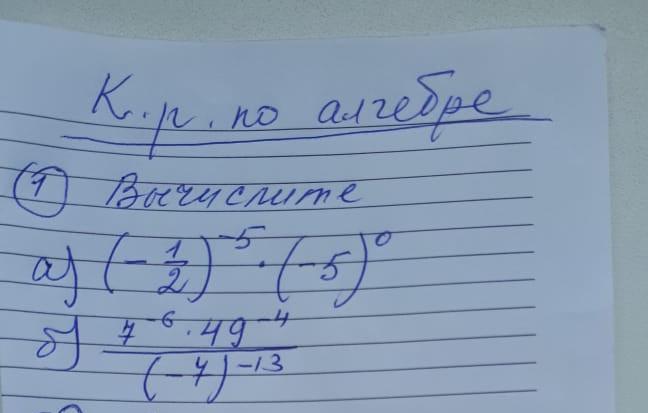 К.р. по алгебре
1 Вычислите
а) (-1/2)^-5 · (-5)^0
б) 7^-6 · 49^-4 / (-7)^-13